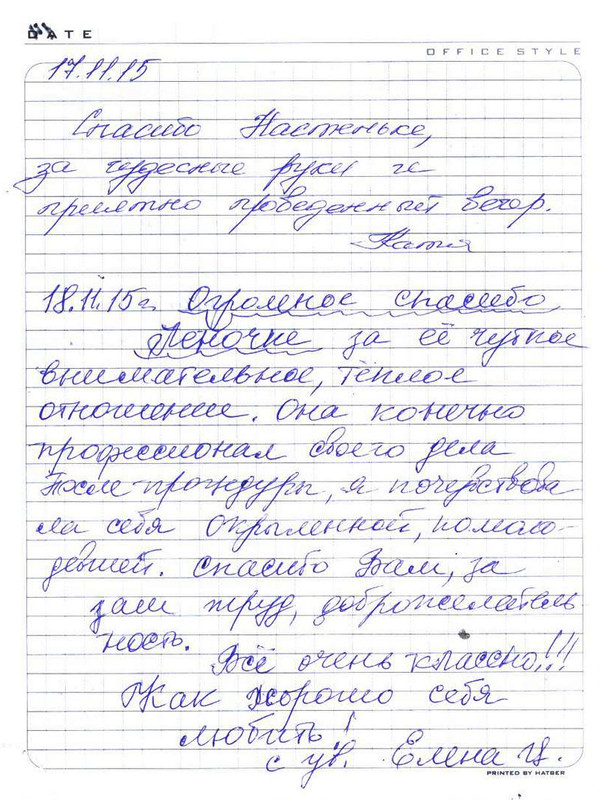 DATE
OFFICE STYLE
17.11.15
Спасибо Настеньке,
за чудесные руки и
приятно проведенный вечер.
Катя
18.11.15г. Огромное спасибо
Леночке за её чуткое
внимательное, тёплое
отношение. Она конечно
профессионал своего дела
После процедуры, я почувствова
ла себя окрыленной, помоло-
девшей. Спасибо Вам, за
ваш труд, доброжелатель
ность.
Всё очень классно!!!
Как хорошо себя
любить!
с ув. Елена Ц.
PRINTED BY HATBER